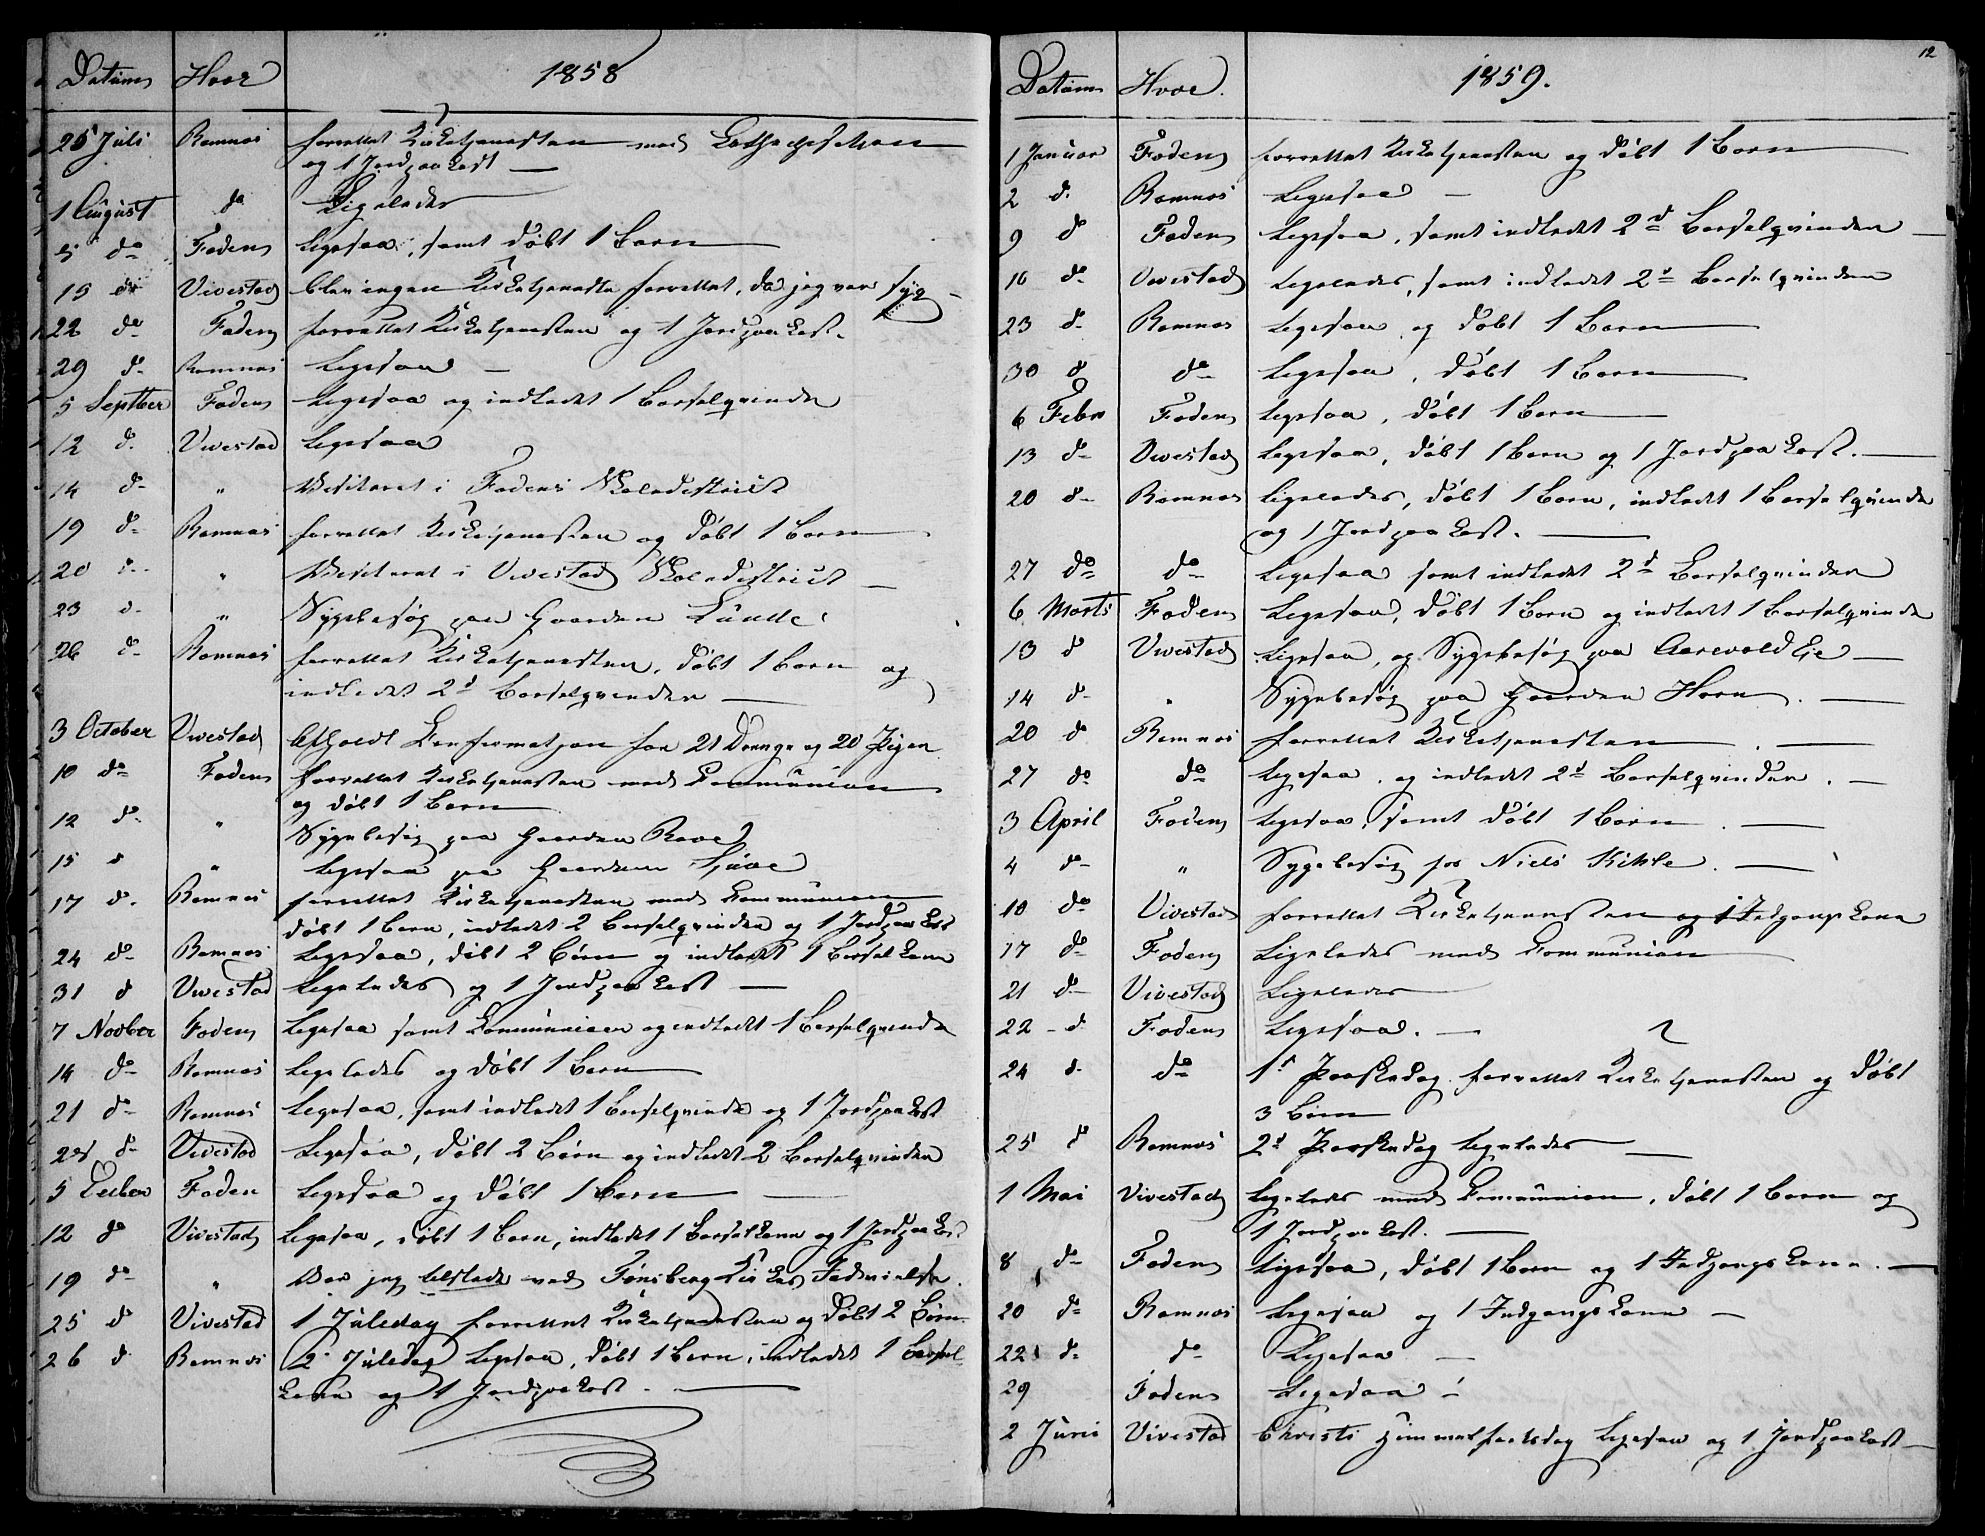 Datum Hvor 1858
25 Juli Ramnæs forrettet Kirketjenesten med
og 1 Jordpaakast
1 August do Ligeledes
5 do Fodens Ligesaa, samt døbt 1 Barn
15 do Vivestad blev ingen Kirketjeneste forrettet, da jeg var syg
22 do Fodens forrettet Kirketjenesten og 1 Jordpaakast
29 do Ramnæs Ligesaa
5 Septber Fodens Ligesaa og indledet 1 Barselqvinde
12 do Vivestad Ligesaa
14 do " Visiteret i Fodens Skoledistrict
19 do Ramnæs forrettet Kirketjenesten og døbt 1 Barn
20 do " Visiteret i Vivestad Skoledistrict
23 do " Sygebesøg paa Gaarden Linde
26 do Ramnæs forrettet Kirketjenesten, døbt 1 Barn og
indledet 2d Barselqvinder
3 October Vivestad Afholdt Confirmatjon for 21 Drenge og 20 Piger
10 do Fodens forrettet Kirketjenesten med Communion
og døbt 1 Barn
12 do " Sygebesøg paa Gaarden Roae
15 d " Ligesaa paa Gaarden
17 d. Ramnæs forrettet Kirketjenesten med Communion
døbt 1 Barn, indledet 2 Barselqvinder og 1 Jordpaakast
24 do Ramnæs Ligesaa, døbt 2 Børn og indledet 1 Barselkone
31 d Vivestad Ligeledes og 1 Jordpaakast
7 Novber Fodens Ligesaa samt Communion og indledet 1 Barselqvinde
14 do Ramnæs Ligeledes og døbt 1 Barn
21 do Ramnæs Ligesaa, samt indledet 1 Barselqvinde og 1 Jordpaakast
28 do Vivestad Ligesaa, døbt 2 Børn og indledet 2 Barselqvinder
5 Decber Foden Ligesaa og døbt 1 Barn
12 do Vivestad Ligesaa, døbt 1 Barn, indledet 1 Barselkone og 1 Jordpaakast
19 do " Var jeg tilstede ved Tønsberg Kirkes Indvielse.
25 d Vivestad 1 Juledag forrettet Kirketjenesten og døbt 2 Børn
26 d Ramnæs 2. Juledag Ligesaa, døbt 1 Barn, indledet 1 Barsel-
kone og 1 Jordpaakast.
12
Datum Hvor. 1859.
1 Januar Fodens forrettet Kirketjenesten og døbt 1 Barn
2 d. Ramnæs Ligesaa
9 d Fodens Ligesaa, samt indledet 2d Barselqvinder
16 do Vivestad Ligeledes, samt indledet 2d Barselqvinder
23 d. Ramnæs Ligesaa og døbt 1 Barn
30 d do Ligesaa, døbt 1 Barn
6 Febr Fodens Ligesaa, døbt 1 Barn
13 do Vivestad Ligesaa, døbt 1 Barn og 1 Jordpaakast.
20 d Ramnæs Ligeledes, døbt 1 Barn, indledet 1 Barselqvinde
og 1 Jordpaakast.
27 do do Ligesaa samt indledet 2d Barselqvinder
6 Marts Fodens Ligesaa, døbt 1 Barn og indledet 1 Barselqvinde
13 d Vivestad Ligesaa, og Sygebesøg paa Aarevold Eie
14 do " Sygebesøg paa Gaarden Horn.
20 d Ramnæs forrettet Kirketjenesten.
27 do do Ligesaa og indledet 2d Barselqvinder.
3 April Fodens Ligesaa, samt døbt 1 Barn.
4 do " Sygebesøg for Niels Kihle.
10 do Vivestad forrettet Kirketjenesten og 1 Indgangskone
17 do Fodens Ligeledes med Communion
21 do Vivestad Ligeledes
22 d Fodens Ligesaa.
24 d. do 1st Paaskedag forrettet Kirketjenesten og døbt
3 Børn
25 d Ramnæs 2d Paaskedag Ligeledes
1 Mai Vivestad Ligeledes med Communion, døbt 1 Barn og
1 Jordpaakast.
8 do Fodens Ligesaa, døbt 1 Barn og 1 Indgangskone.
20 do Ramnæs Ligesaa og 1 Indgangskone
22 do do Ligesaa
29 Fodens Ligesaa
2 Juni Vivestad Christi Himmelfartsdag Ligesaa og 1 Jordpaakast